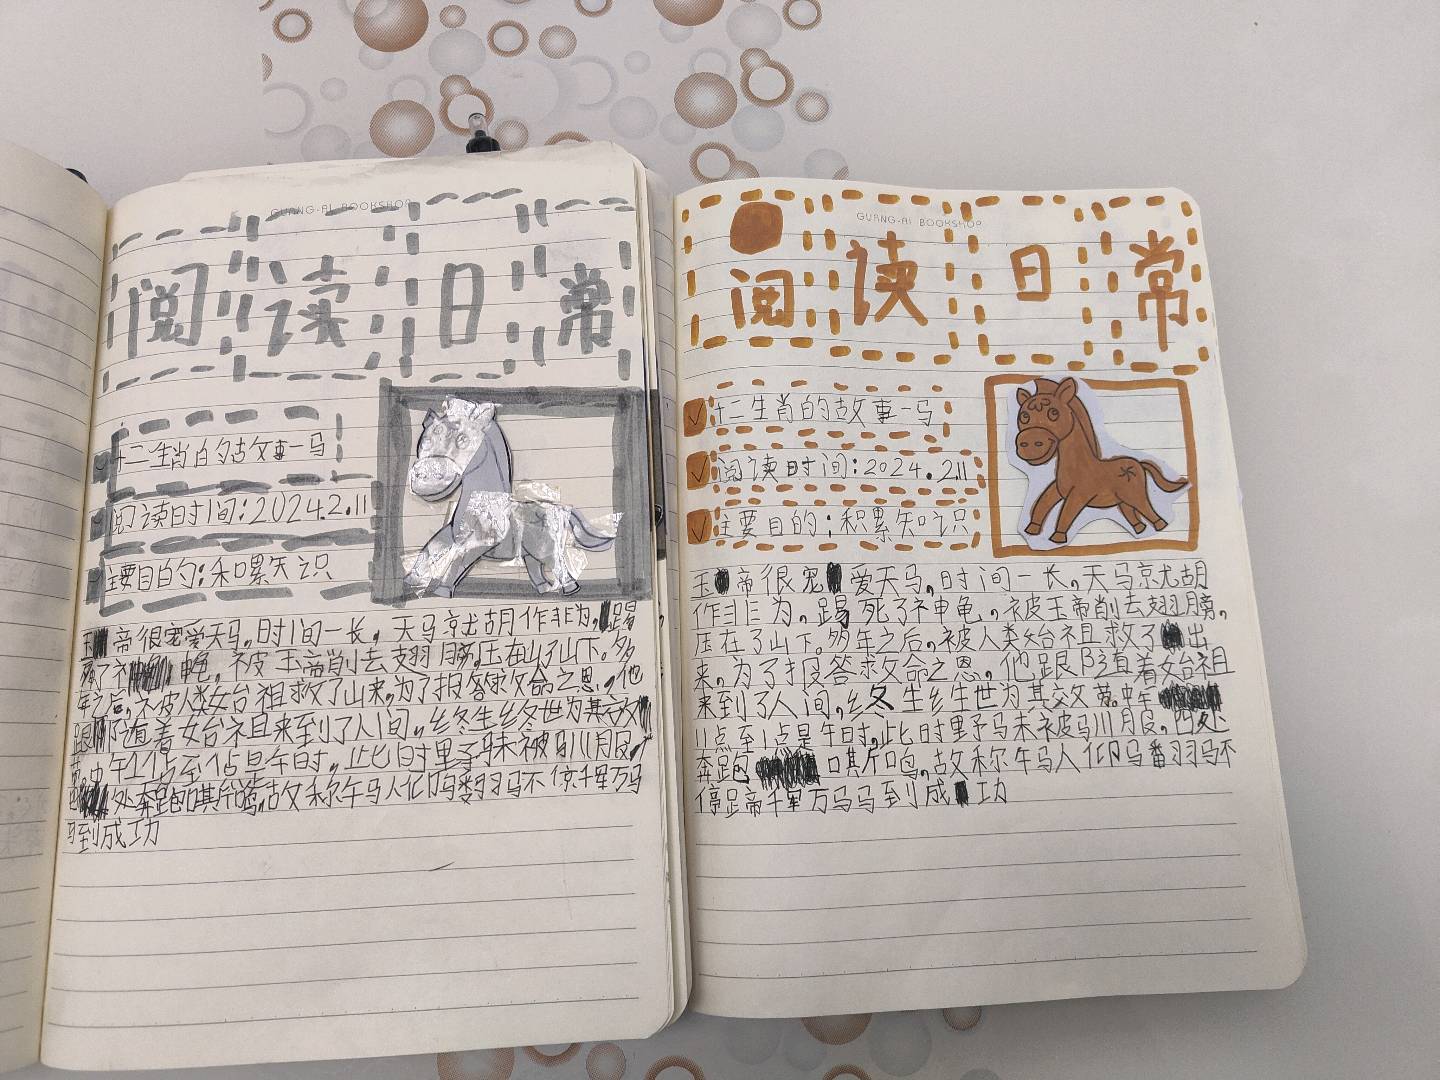 GUANG-AI BOOKSHOP
阅读日常
十二生肖的故事一马
阅读时间:2024.2.11
主要目的:积累知识
玉帝很宠爱天马,时间一长,天马就胡作非为,踢
死了神龟,被玉帝削去翅膀,压在了山下。多
年之后,被人类始祖救了出来,为了报答救命之恩,他
跟随着始祖来到了人间,终生终世为其效
午11点至1点是午时,此时里予马未被马川月反,
处奔跑嘶鸣,故称午马人们马番羽马不停千军万马
马到成功
GUANG-AI BOOKSHOP
阅读日常
十二生肖的故事一马
阅读时间:2024.2.11
主要目的:积累知识
玉帝很宠爱天马,时间一长,天马就胡
作非为,踢死了神龟,被玉帝削去翅膀,
压在了山下。多年之后,被人类始祖救了出
来,为了报答救命之恩,他跟随着始祖
来到了人间,终生终生世为其效劳。中午
11点至1点是午时,此时野马未被驯服,四处
奔跑嘶鸣,故称午马人们马番羽马不
停蹄千军万马马到成功